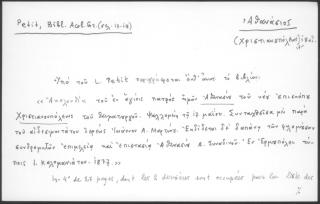 Petit, Bibl. Acol. Gr. (σς. 17-18)
Ἀθανάσιος
(Χριστιανουπόλεως)
Ὑπὸ τοῦ L. Petit περιγράφεται τὸ βιβλίον.
«Ἀκολουθία τοῦ ἐν ἁγίοις πατρὸς ἡμῶν Ἀθανασίου τοῦ νέου ἐπισκόπου
Χριστιανουπόλεως τοῦ θαυματουργοῦ. Ψαλλομένη τῇ 17 μαΐου. Συνταχθεῖσα μὲν παρὰ
τοῦ αἰδεσιμωτάτου ἱερέως Ἰωάννου Α. Μαρτίνου. Ἐκδίδεται δὲ δαπάνῃ τῶν φιλομούσων
συνδρομητῶν ἐπιμελείᾳ καὶ ἐπιστασίᾳ Ἀθανασίου Α. Συνοδινοῦ. Ἐν Ἑρμουπόλει τύ-
ποις Ι. Καμπανιάτου. 1877.»
In-4° de 27 pages, dont les 2 dernières sont occupées par la liste des